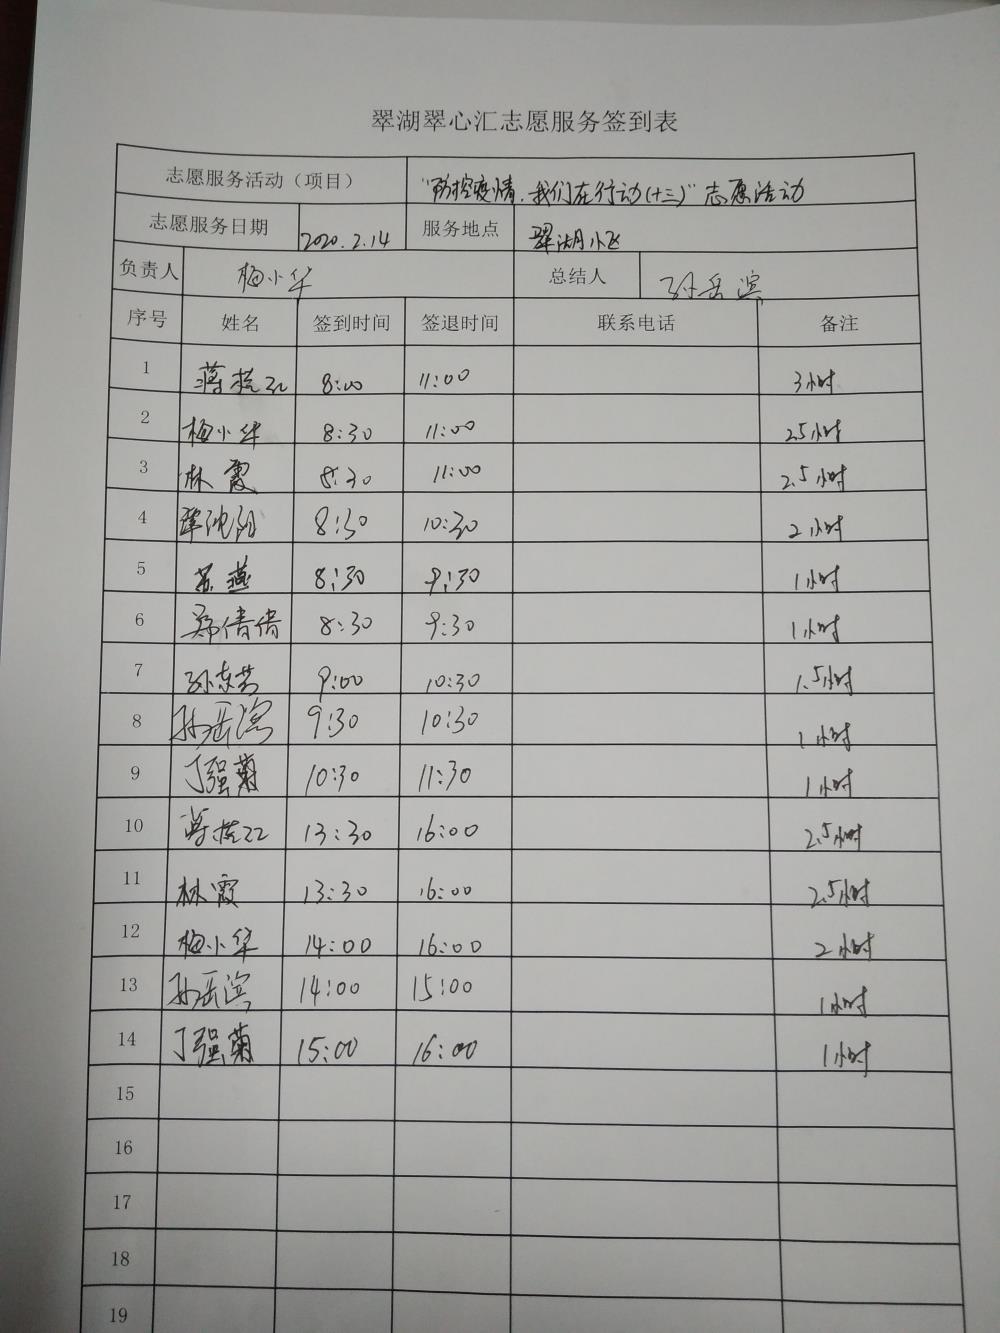 翠湖翠心汇志愿服务签到表
志愿服务活动（项目） "防控疫情，我们在行动（十三）"志愿活动
志愿服务日期 2020.2.14 服务地点 翠湖小区
负责人 梅小华 总结人 孙岳滨
序号 姓名 签到时间 签退时间 联系电话 备注
1 蒋 8:00 11:00 3小时
2 梅小华 8:30 11:00 2.5小时
3 林霞 8:30 11:00 2.5小时
4 8:30 10:30 2小时
5 苏燕 8:30 9:30 1小时
6 郑倩倩 8:30 9:30 1小时
7 孙东芳 9:00 10:30 1.5小时
8 孙岳滨 9:30 10:30 1小时
9 丁强菊 10:30 11:30 1小时
10 蒋 13:30 16:00 2.5小时
11 林霞 13:30 16:00 2.5小时
12 梅小华 14:00 16:00 2小时
13 孙岳滨 14:00 15:00 1小时
14 丁强菊 15:00 16:00 1小时
15
16
17
18
19